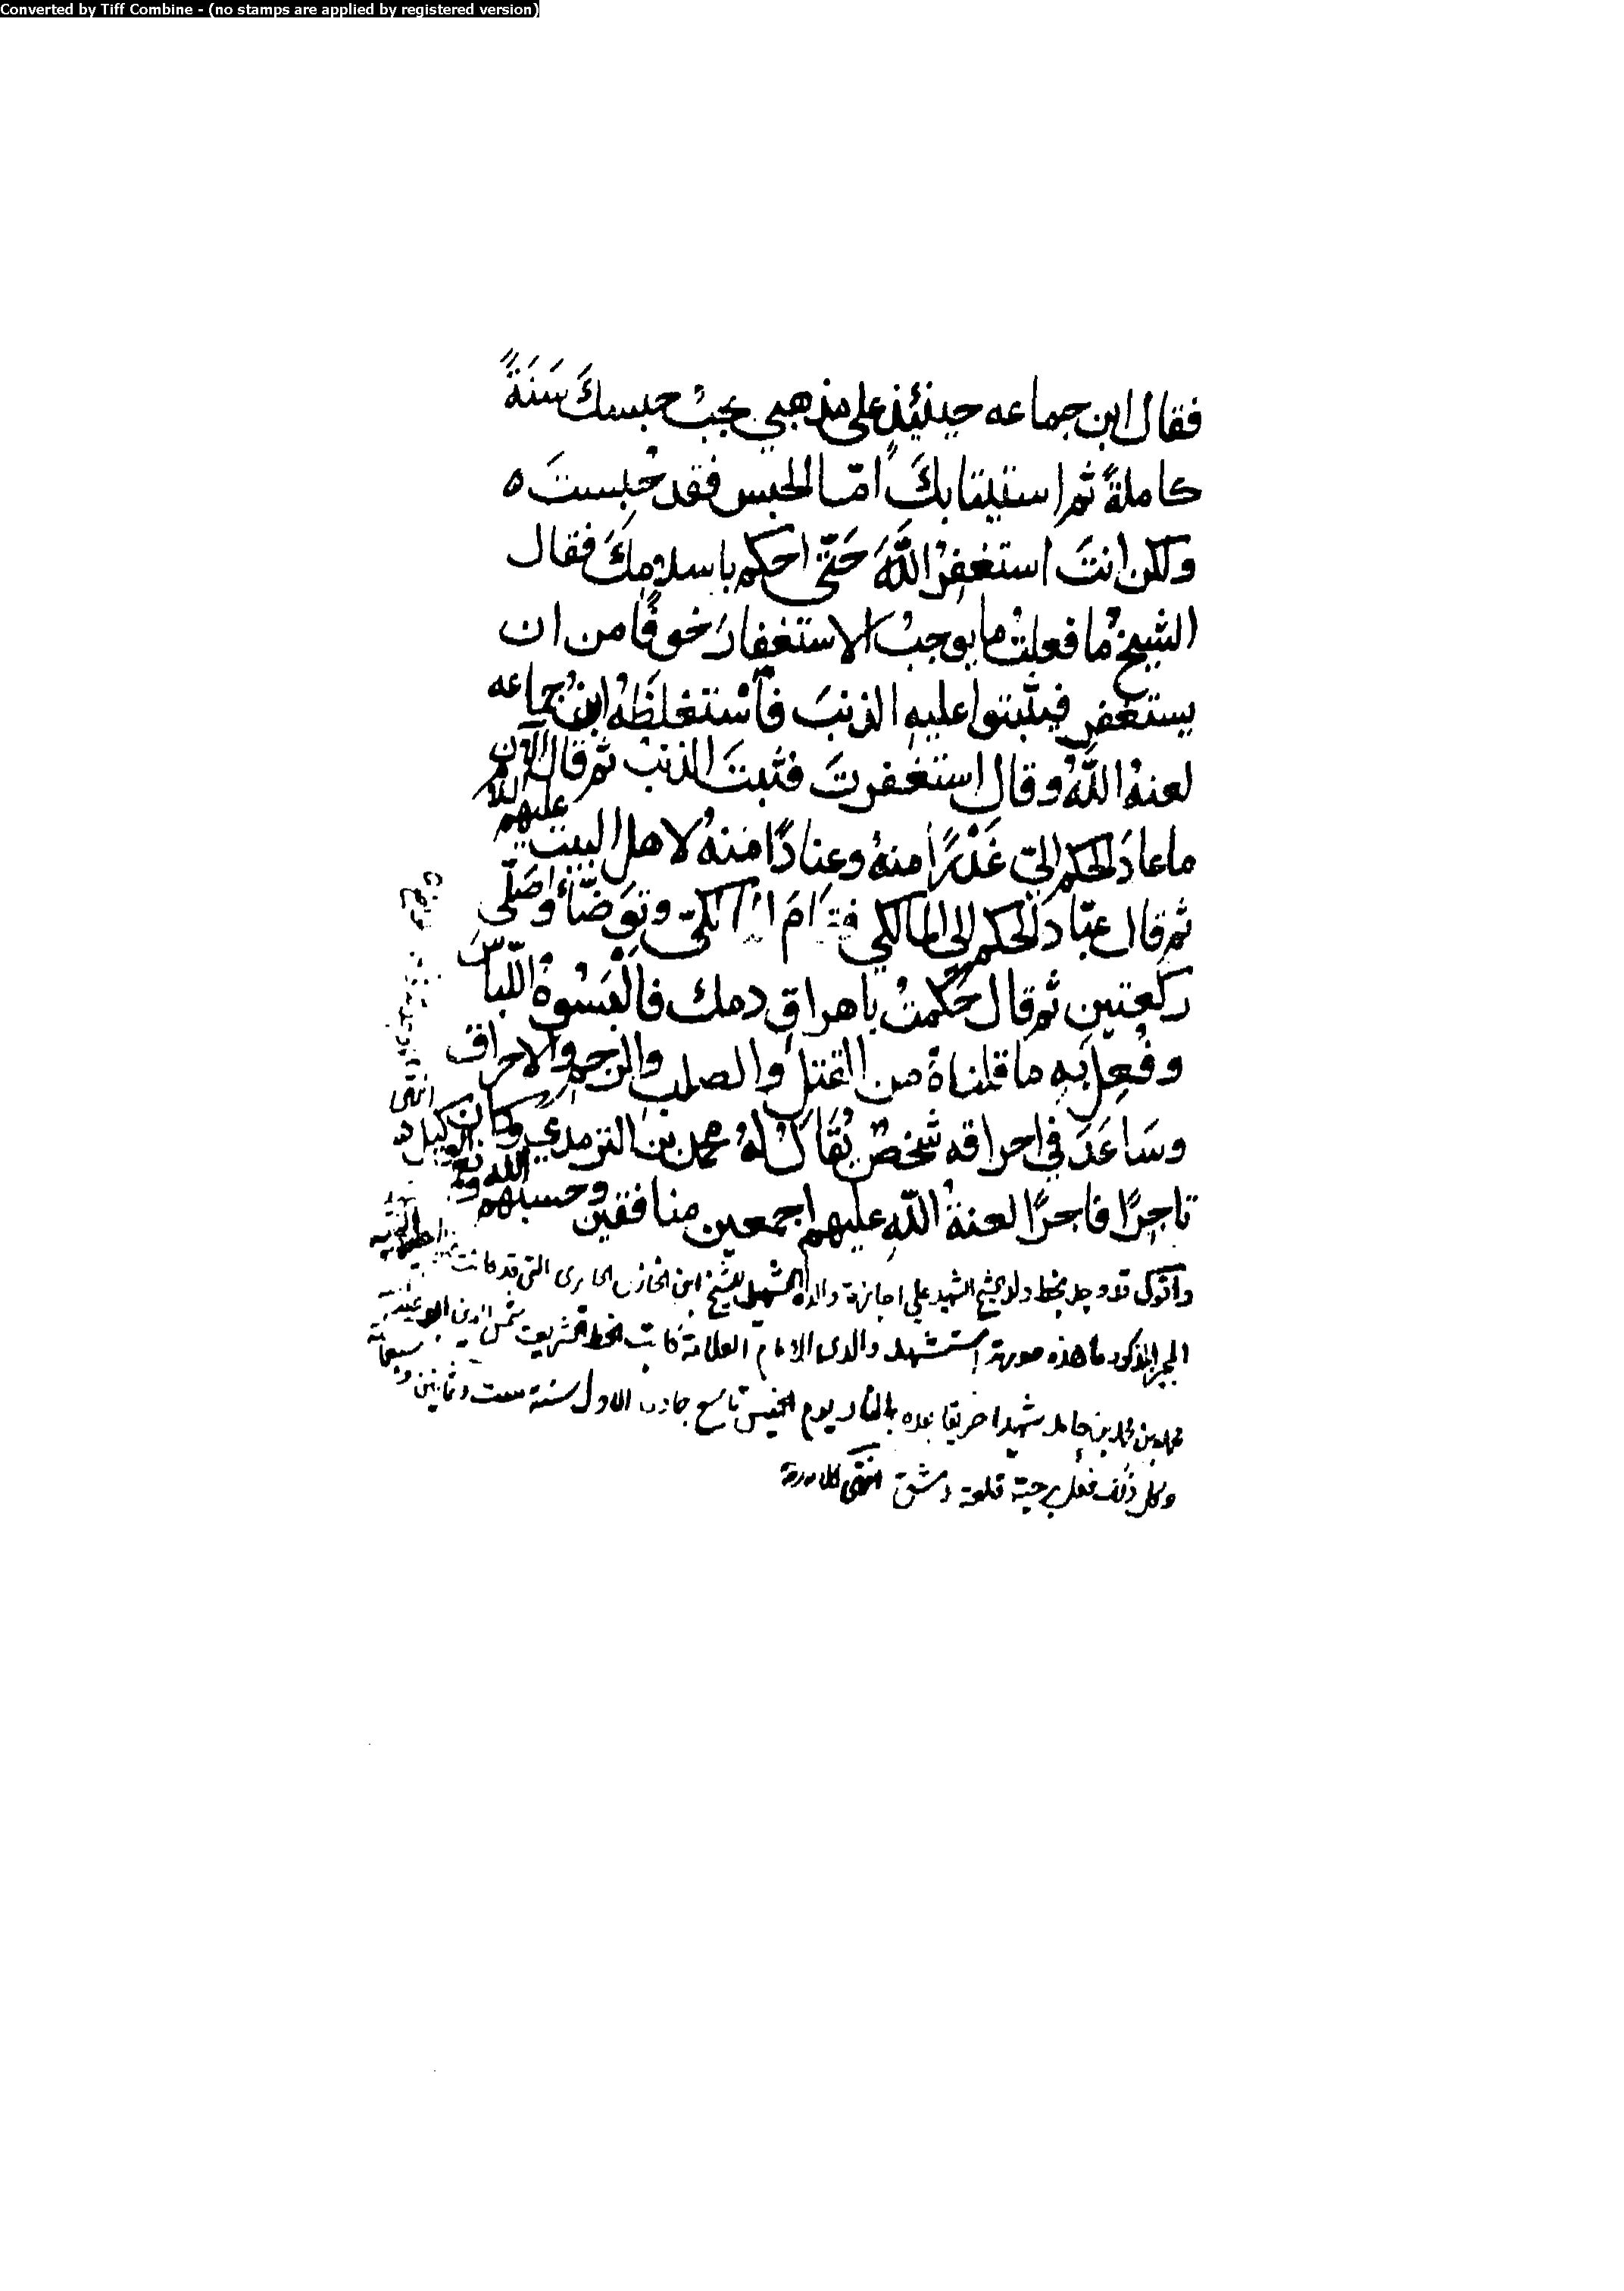 Converted by Tiff Combine - (no stamps are applied by registered version)
فقال ابن جماعه حينئذ على مذهبي يجبُ حبسكَ سَنَةً
كاملةً ثم استيتابكَ امّا الحبس فقد حُبستَ ه
ولكن انتَ استغفرُ اللّٰهَ حَتّى احكم باسلامِكَ فقال
الشيخُ ما فعلتُ ما يوجبُ الاستغفارَ خوفًا من ان
يستغفر فيثبتوا عليه الذنبَ فاَسْتغلظَهُ ابنُ جماعه
لعنهُ اللّٰهُ وقال استغفرتَ فثبتَ الذنبُ ثم قال الآن
ما عادَ الحكم اليّ غَدْرًا منهُ وعنادًا منهُ لاهل البيت عليهم السلام
ثم قال عادَ الحكم الى المالكي فقامَ المالكيّ وتوضّأ وصَلّى
ركعتين ثم قال حَكمتُ باهراقِ دمك فالْبَسُوهُ اللّباسَ
وفُعِلَ به ما قلناهُ من القتل والصلب والرجم والاحراق
وسَاعَدَ في احراقه شخصٌ يُقالُ لهُ محمد بن الترمدي وكان
تاجرًا فاجرًا لعنةُ اللّٰهِ عليهم اجمعين منافقين وحسبهم الله ونعم الوكيل
انتهى
واقول قد وجد بخط ولد الشيخ الشهيد علي اجازة والده الشهيد للشيخ ابن الخازن الحايرى التى قد كانت
المذكور ما هذه صورته استشهد والدى الامام العلامة كاتب الخط الشريف شمس الدين ابو عبد
محمد بن محمد بن حامد شهيدا حريقا بعده بالنار يوم الخميس تاسع جمادى الاول سنة ست وثمانين وسبعمائة
وكل ذلك فعل برحبة قلعة دمشق انتهى كلامه